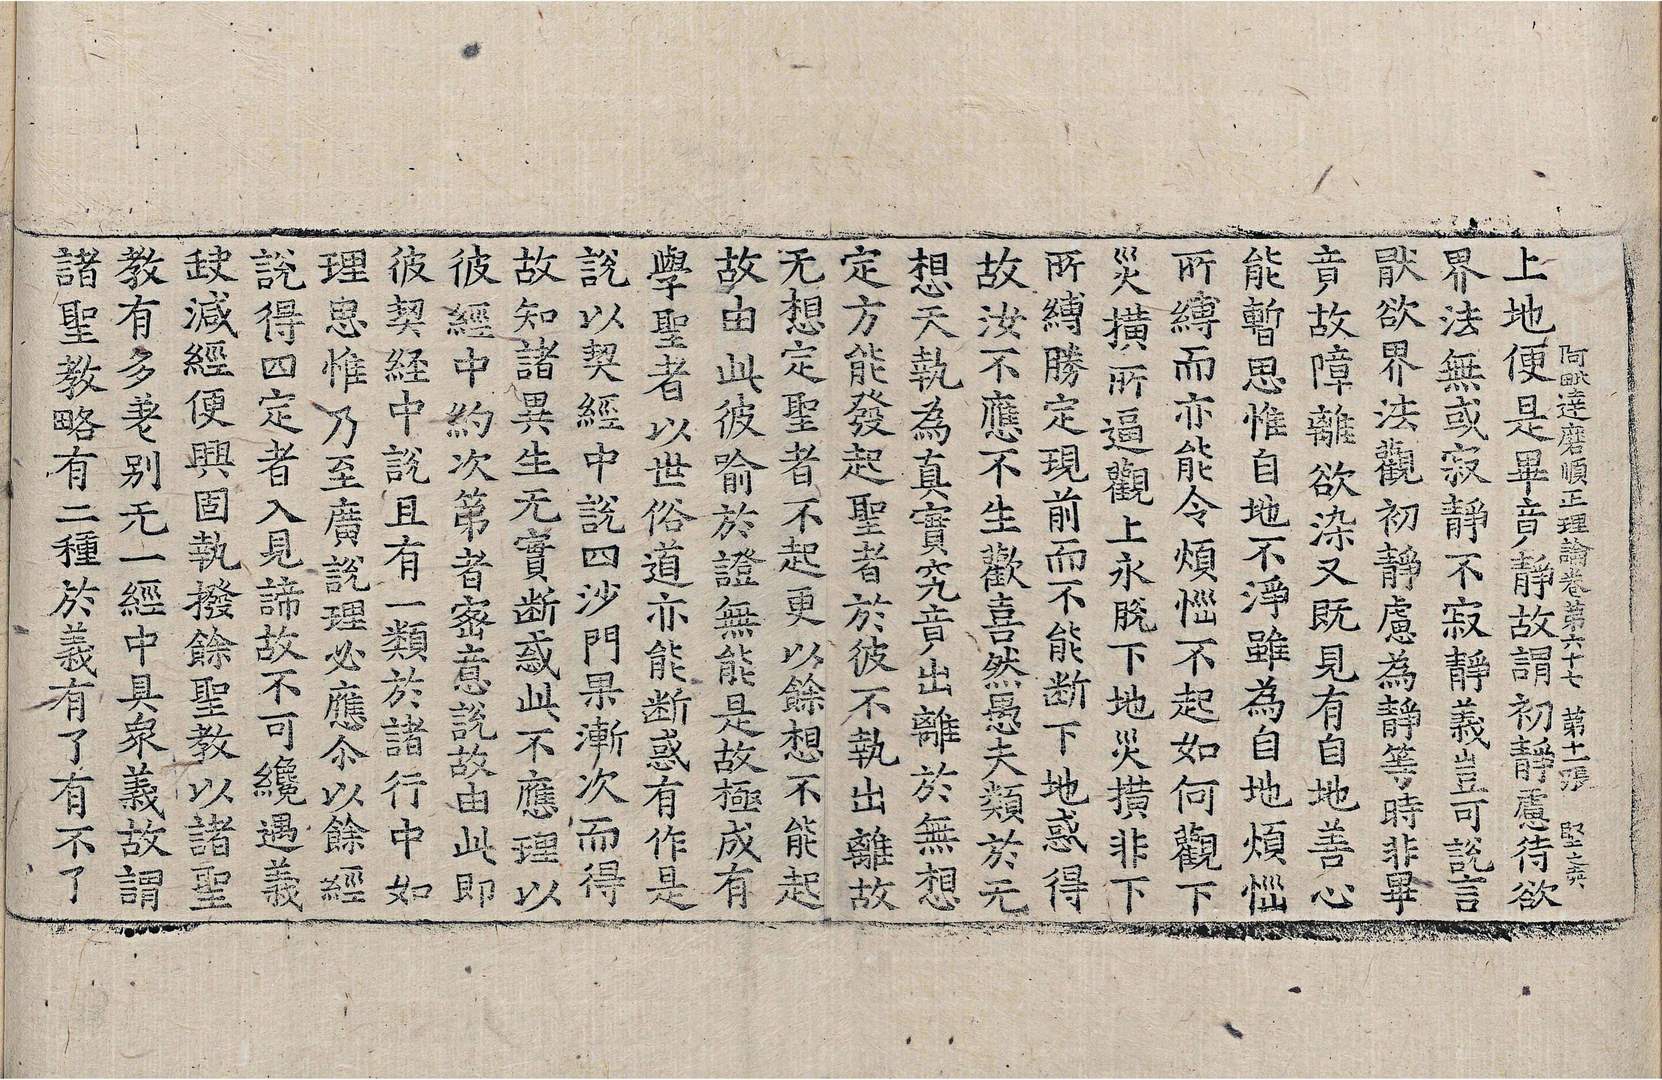 阿毗達磨順正理論卷第六十七 第十一張 堅
上地便是畢竟靜故謂初靜慮待欲
界法無或寂靜不寂靜義豈可說言
猒欲界法觀初靜慮為靜等時非畢
竟故障離欲染又既見有自地善心
能暫思惟自地不淨雖為自地煩惱
所縛而亦能令煩惱不起如何觀下
災橫所逼觀上永脫下地災橫非下
所縛勝定現前而不能斷下地惑得
故汝不應不生歡喜然愚夫類於无
想天執為真實究竟出離於無想
定方能發起聖者於彼不執出離故
无想定聖者不起更以餘想不能起
故由此彼喻於證無能是故極成有
學聖者以世俗道亦能断惑有作是
說以契經中說四沙門果漸次而得
故知諸異生无實断惑此不應理以
彼經中約次第者密意說故由此即
彼契経中說且有一類於諸行中如
理思惟乃至廣說理必應尒以餘經
說得四定者入見諦故不可纔遇義
缺減經便興固執撥餘聖教以諸聖
教有多差別无一經中具衆義故謂
諸聖教略有二種於義有了有不了